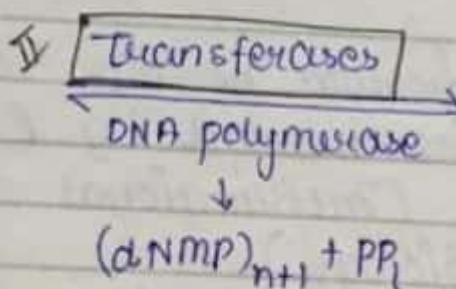 II Transferases
DNA polymerase
↓
(dNMP)n+1 + PPi